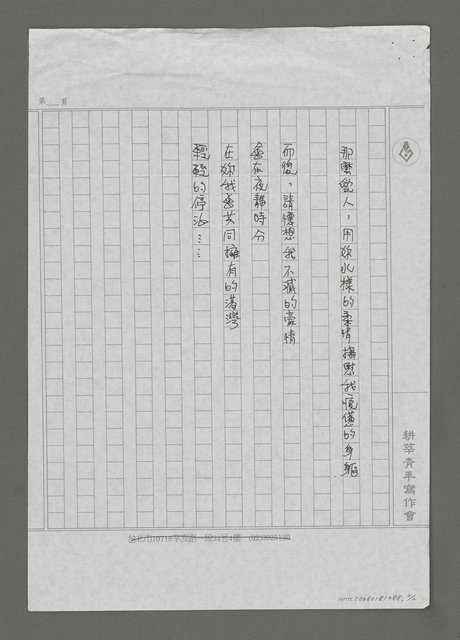 第　頁
那麼戀人，用妳水樣的柔情撫慰我疲憊的身軀
而後，請懷想我不滅的豪情
會在夜靜時分
在妳我曾共同擁有的港灣
輕輕的停泊……
耕莘青年寫作會
台北市10718辛亥路一段24號4樓